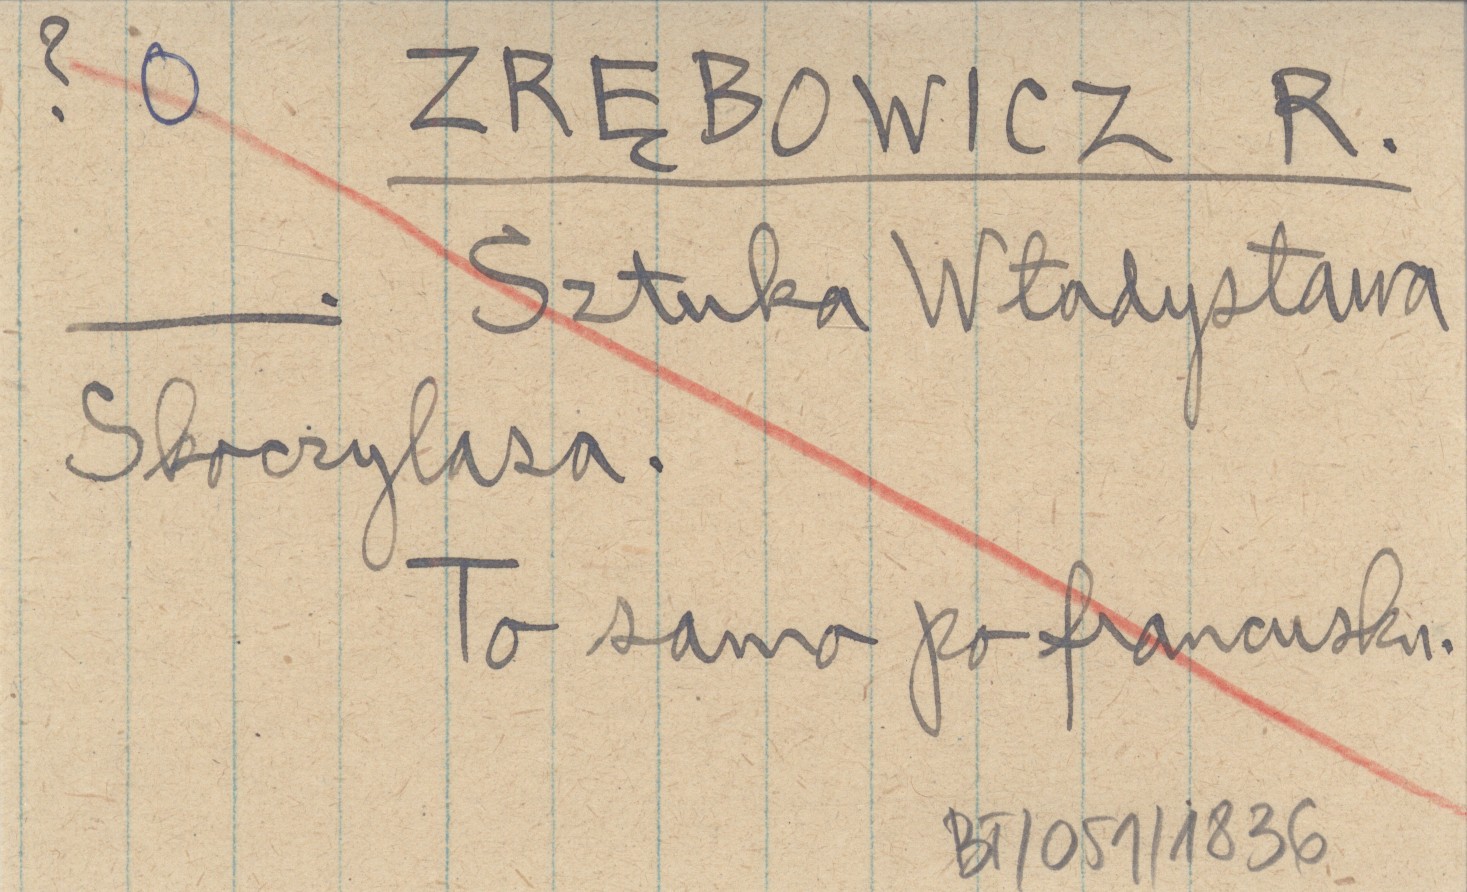 ? O ZRĘBOWICZ R.
———. Sztuka Władysława
Skoczylasa.
To samo po francusku.
BT/051/1836